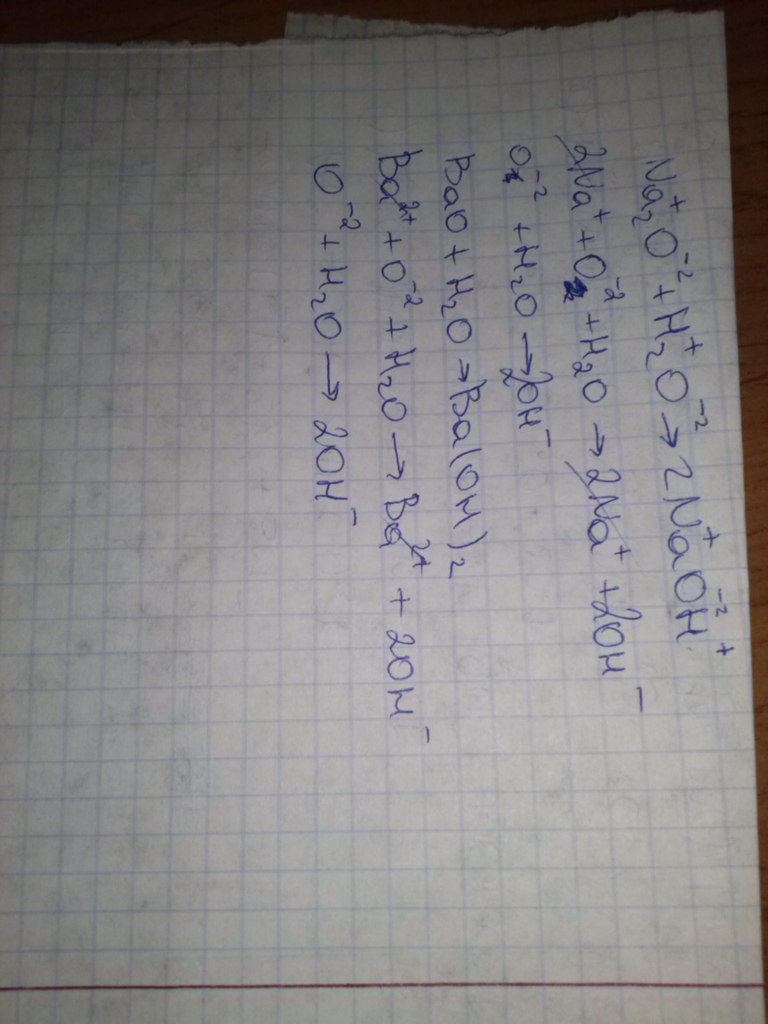 Na₂⁺O⁻² + H₂⁺O⁻² → 2Na⁺O⁻²H⁺
2Na⁺ + O⁻² + H₂O → 2Na⁺ + 2OH⁻
O⁻² + H₂O → 2OH⁻
BaO + H₂O → Ba(OH)₂
Ba²⁺ + O⁻² + H₂O → Ba²⁺ + 2OH⁻
O⁻² + H₂O → 2OH⁻